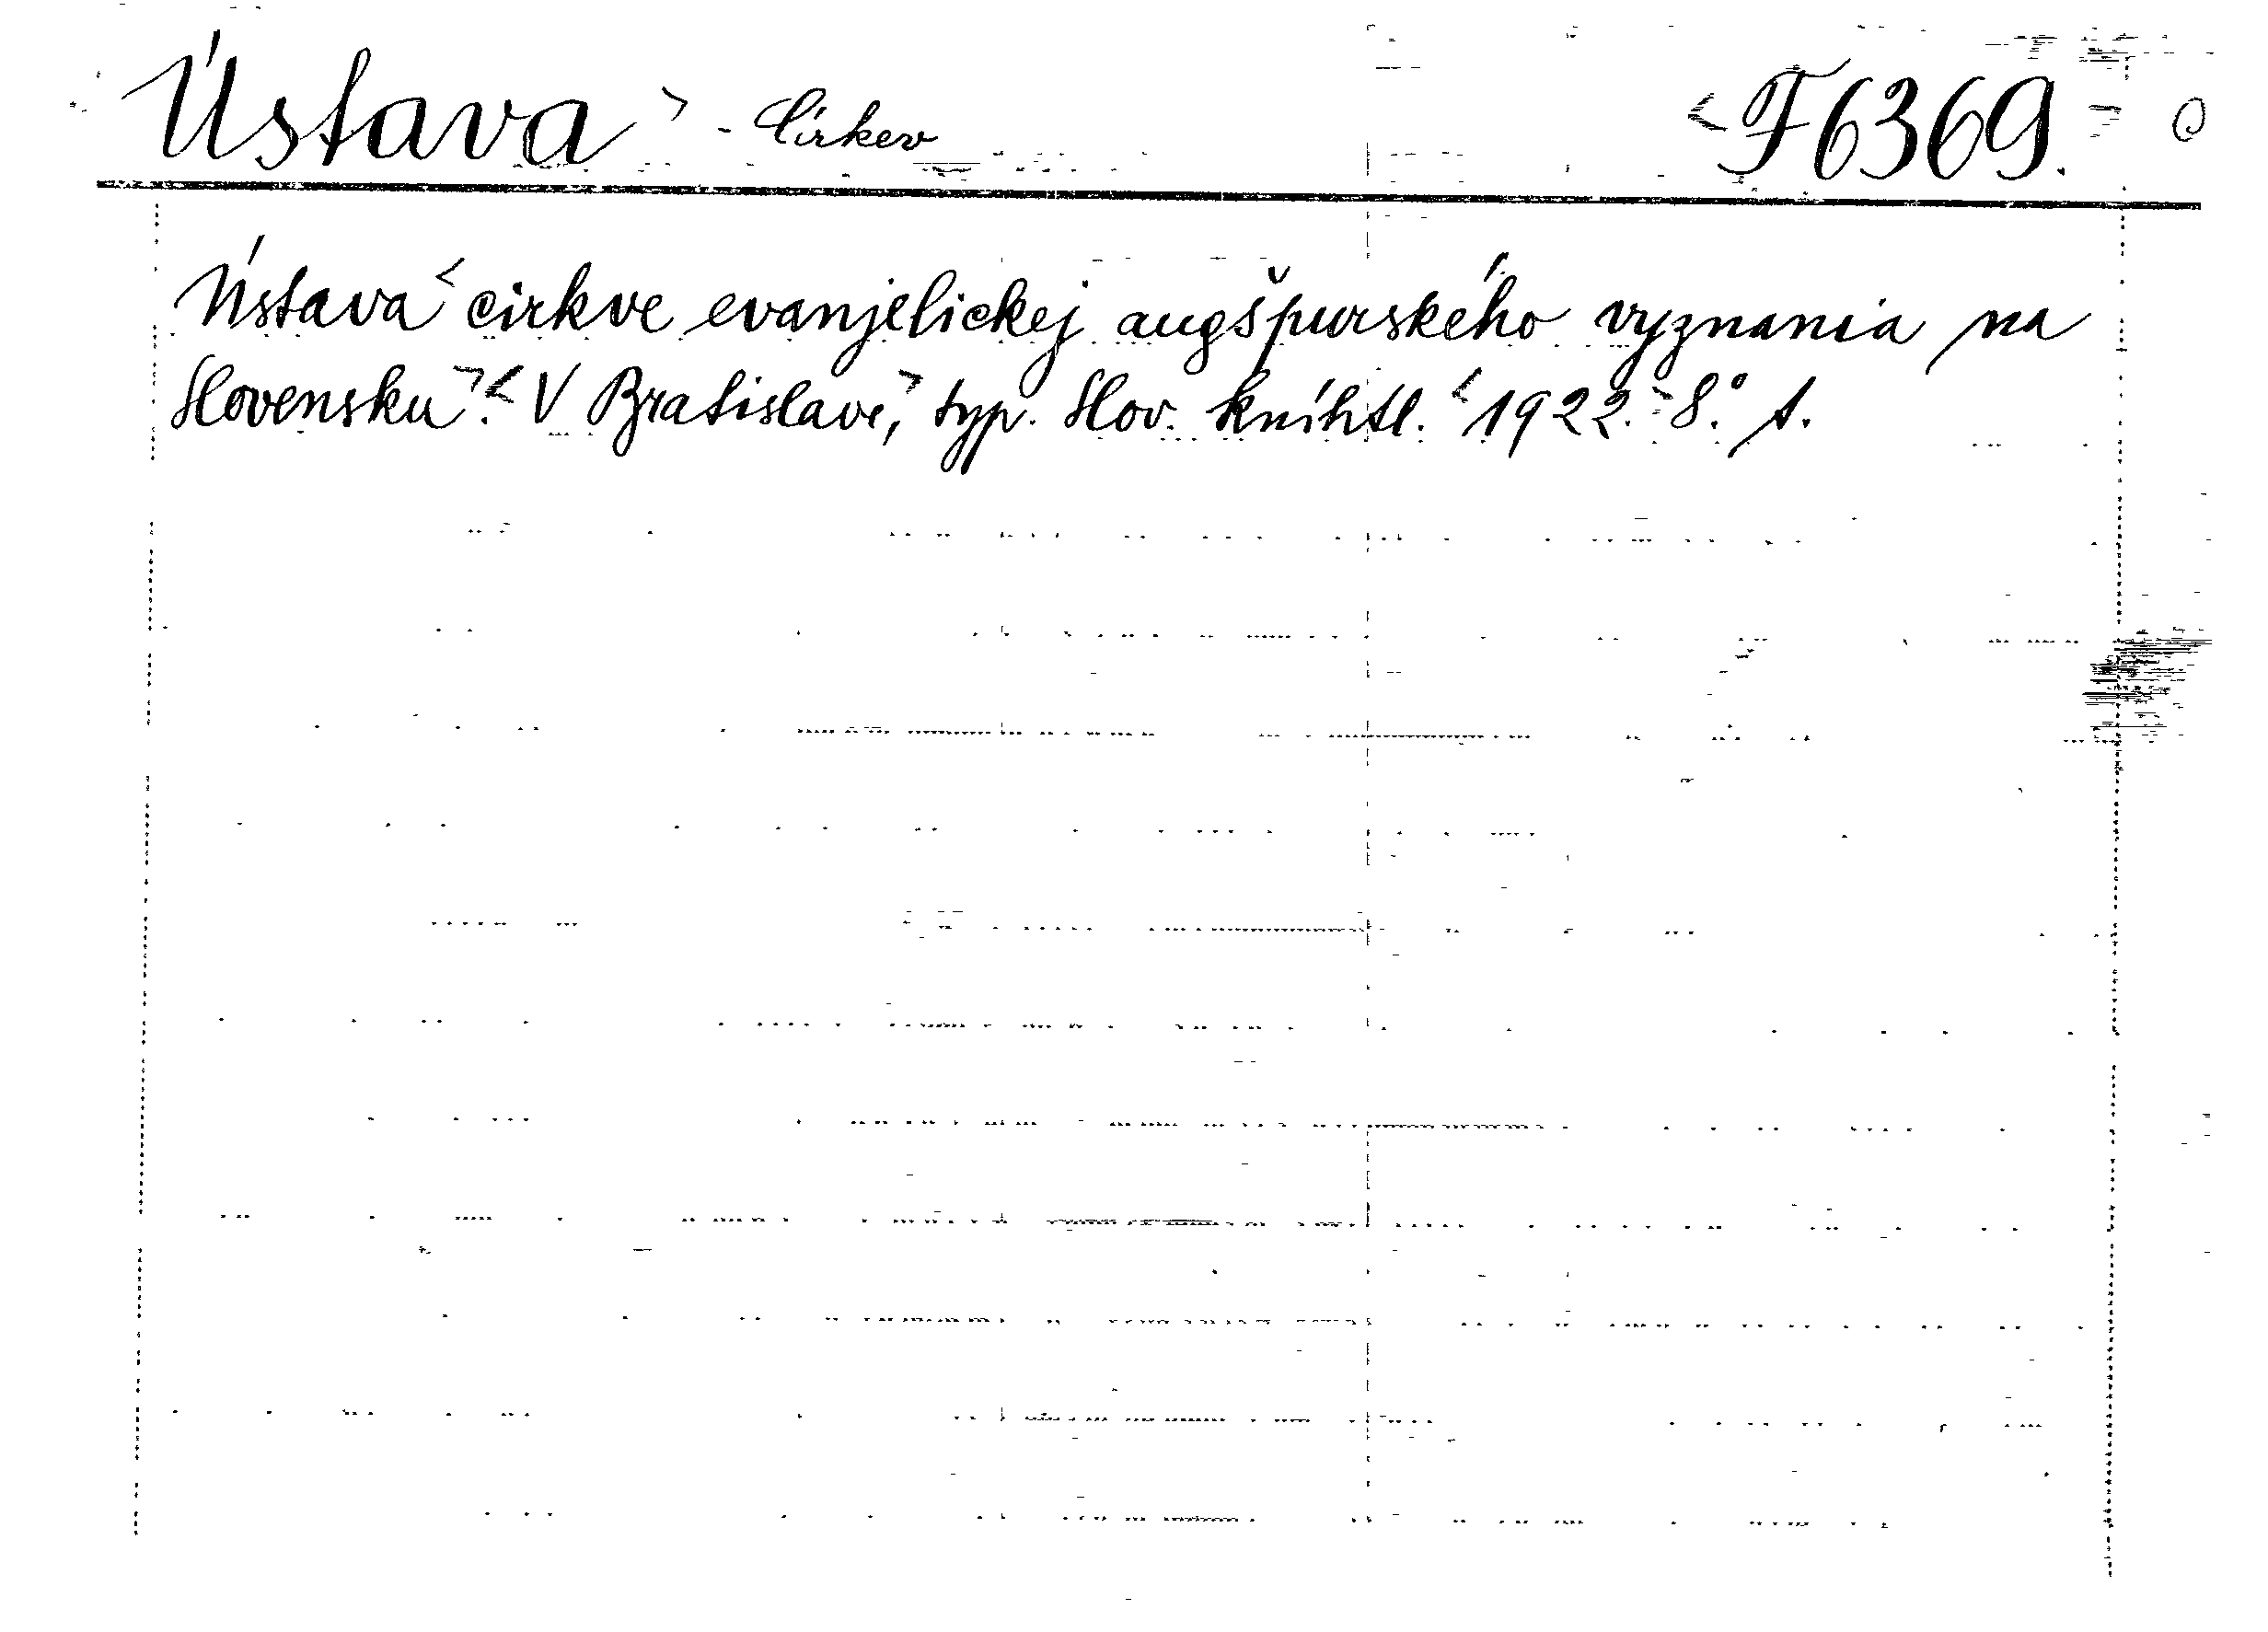 Ústava > - Církev < F6369. > O
Ústava < cirkve evanjelickej augšpurského vyznania na
Slovensku > . < V Bratislave, > typ. Slov. kníhtl. < 1922. > 8.°